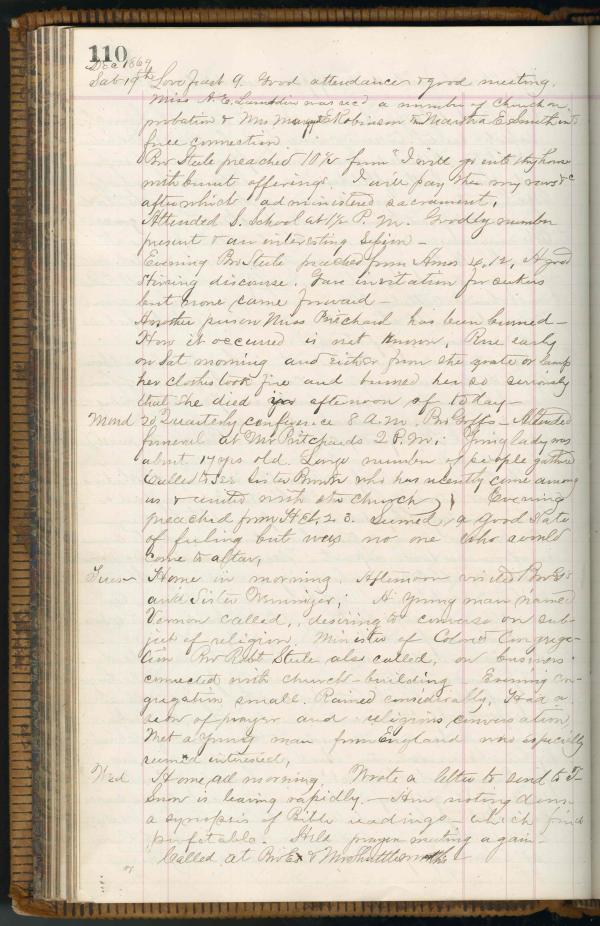 110
Dec 1869
Sab 19th Love feast 9 Good attendance & good meeting.
Miss A. E. was recd a number of Church on
probation & Mrs Robinson & Martha E. Smith into
free connection
Bro Steele preached 10½ from "I will go into thy house
with burnt offerings, I will pay thee my vows &c
after which administered sacrament,
Attended S. School at 1½ P. M. Goodly number
present & an interesting session –
Evening Bro Steele preached from Amos 4, 12, A good
stirring discourse. Gave invitation for seekers
but none came forward –
Another person Miss Pritchard has been burned –
How it occurred is not known, Rose early
on Sat morning and either from the grate or lamp
her clothes took fire and burned her so seriously
that she died afternoon of today –
Mond 20 Quarterly conference 8 A.M. Bro Goffs – Attended
funeral at Mr Pritchards 2 P.M. Young lady was
about 17 yrs old. Large number of people gathered
Called to see Sister Brown who has recently come among
us & united with the church Evening
preached from Heb, 2 3. Seemed a good state
of feeling but was no one who would
come to altar,
Tues – Home in morning. Afternoon visited Bro
and Sister A young man named
Vernon called, desiring to converse on sub-
ject of religion. Minister of Colored Congrega-
tion Bro Robt Steele also called, on business
connected with church-building Evening con-
gregation small. Rained considerably, Had a
season of prayer and religious conversation,
Met a young man from England who especially
seemed interested,
Wed Home all morning. Wrote a letter to send to T–
Snow is leaving rapidly. – Am noting down
a synopsis of Bible readings – which find
profitable. Held prayer meeting again –
Called at Bro & Mrs Shuttleworths